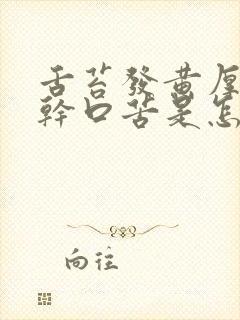 舌苔發黃厚
幹口苦是怎
向往